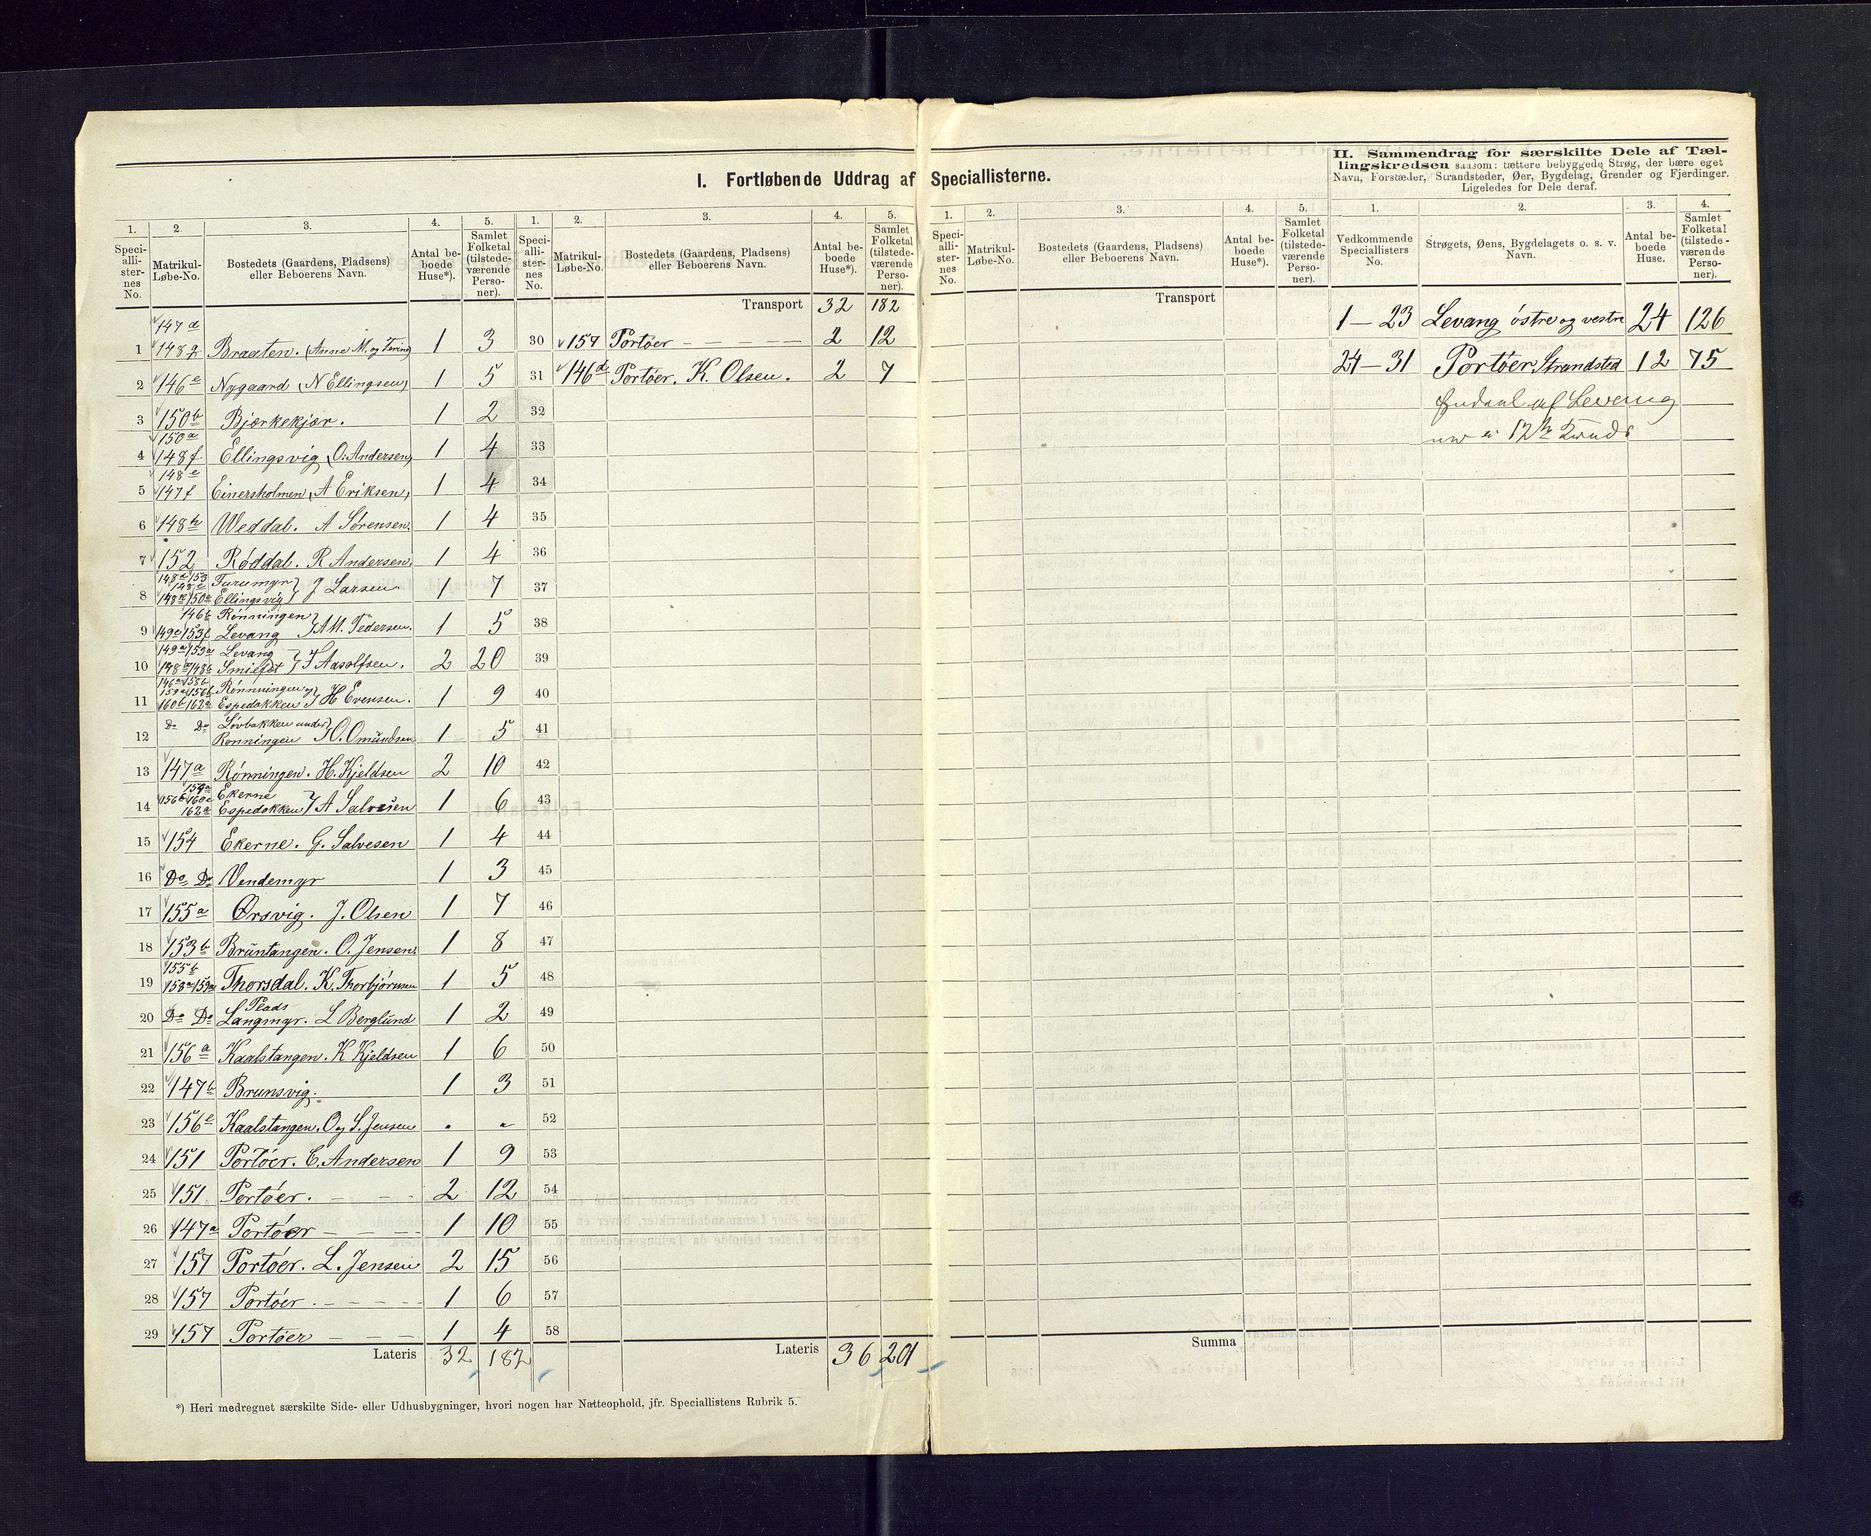 I. Fortløbende Uddrag af Speciallisterne.
1. 2 3. 4. 5.
Speciallisternes No. Matrikul-Løbe-No. Bostedets (Gaardens, Pladsens) eller Beboerens Navn. Antal beboede Huse*). Samlet Folketal (tilstedeværende Personer).
147d
1 148g Braaten. (Anne M. og Torine) 1 3
2 146e Nygaard (N Ellingsen) 1 5
3 150b Bjørkekjær. 1 2
150a
4 148f Ellingsvig (O. Andersen) 1 4
148e
5 147f Einersholmen (A Eriksen) 1 4
6 148h Weddal. A Sørensen. 1 4
7 152 Røddal. R Andersen. 1 4
Furumyr
8 Ellingsvig } J Larsen. 1 7
146b Rønningen
9 149c 153f Levang } A M. Pedersen. 1 5
149a 153a Levang
10 148a 148b Smiefot } T Aasolfsen. 2 20
159a 156b Rønningen og
11 160b 162a Espedokken } H Evensen. 1 9
Do Do Løvbakken under
12 Rønningen } O. Omundsen 1 5
13 147a Rønningen. H. Kjeldsen 2 10
Ekerne
14 162a Espedokken } A Salvesen 1 6
15 154 Ekerne. G. Salvesen 1 4
16 Do Do Vendemyr 1 3
17 155a Ørsvig. J. Olsen 1 7
18 153b Bruntangen. O. Jensen. 1 8
155b
19 158a 159a Thorsdal. K. Thorbjørnsen 1 5
Plads
20 Do Do Langmyr. L Berglund 1 2
21 156a Kaalstangen. K Kjeldsen 1 6
22 147b Brunsvig. 1 3
23 156e Kaalstangen. O og S. Jensen " "
24 151 Portøer. C. Andersen 1 9
25 151 Portøer. — — — 2 12
26 147a Portøer — — — 1 10
27 157 Portøer. L. Jensen 2 15
28 157 Portøer. — — — 1 6
29 157 Portøer — — — 1 4
Lateris 32 182
*) Heri medregnet særskilte Side- eller Udhusbygninger, hvori nogen har Natteophold, jfr. Speciallistens Rubrik 5.
1. 2. 3. 4. 5.
Speciallisternes No. Matrikul-Løbe-No. Bostedets (Gaardens, Pladsens) eller Beboerens Navn. Antal beboede Huse*). Samlet Folketal (tilstedeværende Personer).
Transport 32 182
30 157 Portøer — — — — 2 12
31 146d Portøer. K. Olsen. 2 7
32
33
34
35
36
37
38
39
40
41
42
43
44
45
46
47
48
49
50
51
52
53
54
55
56
57
58
Lateris 36 201
1. 2. 3. 4. 5.
Speciallisternes No. Matrikul-Løbe-No. Bostedets (Gaardens, Pladsens) eller Beboerens Navn. Antal beboede Huse*). Samlet Folketal (tilstedeværende Personer).
Transport
Summa
II. Sammendrag for særskilte Dele af Tællingskredsen saasom: tættere bebyggede Strøg, der bære eget Navn, Forstæder, Strandsteder, Øer, Bygdelag, Grender og Fjerdinger. Ligeledes for Dele deraf.
1. 2. 3. 4.
Vedkommende Speciallisters No. Strøgets, Øens, Bygdelagets o. s. v. Navn. Antal beboede Huse. Samlet Folketal (tilstedeværende Personer).
1 — 23 Levang østre og vestre 24 126
24 — 31 Portøer Strandsted 12 75
af Levang